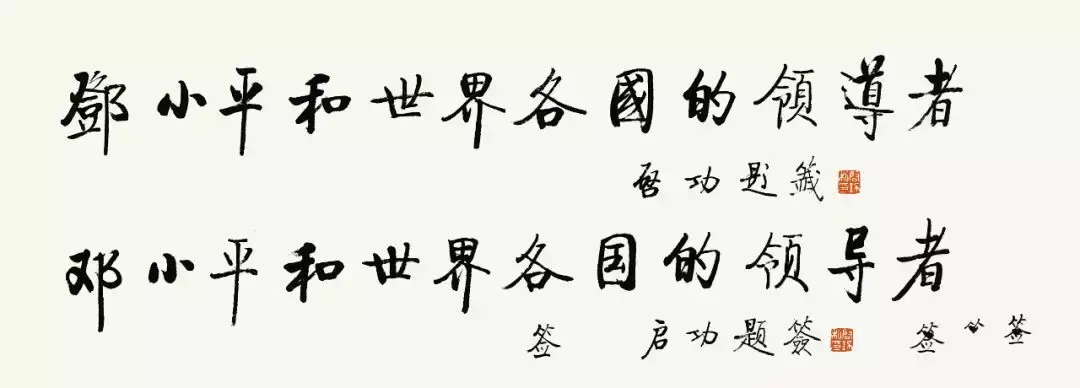 鄧小平和世界各國的領導者
啓功題籤
邓小平和世界各国的领导者
签 启功题簽 签 ⺮ 签